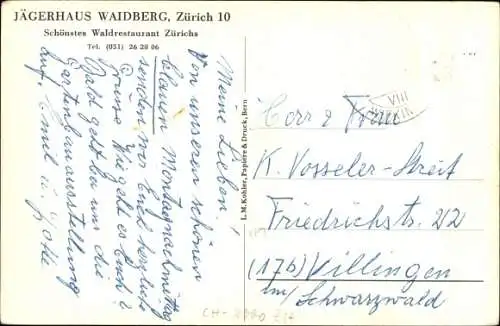 JÄGERHAUS WAIDBERG, Zürich 10
Schönstes Waldrestaurant Zürichs
Tel. (051) 26 28 06
Meine Lieben!
Von unserem schönen
blauen Montagnachmittag
senden wir Euch herzliche
Grüsse. Wie geht es Euch?
Bald geht bei uns die
Gartenbauausstellung
auf. Emil u. Jolle
L. M. Kohler, Papiere & Druck, Bern
VIII
Herr & Frau
K. Vosseler-Streit
Friedrichstr. 22
(17b) Villingen
im/Schwarzwald
CH-8000